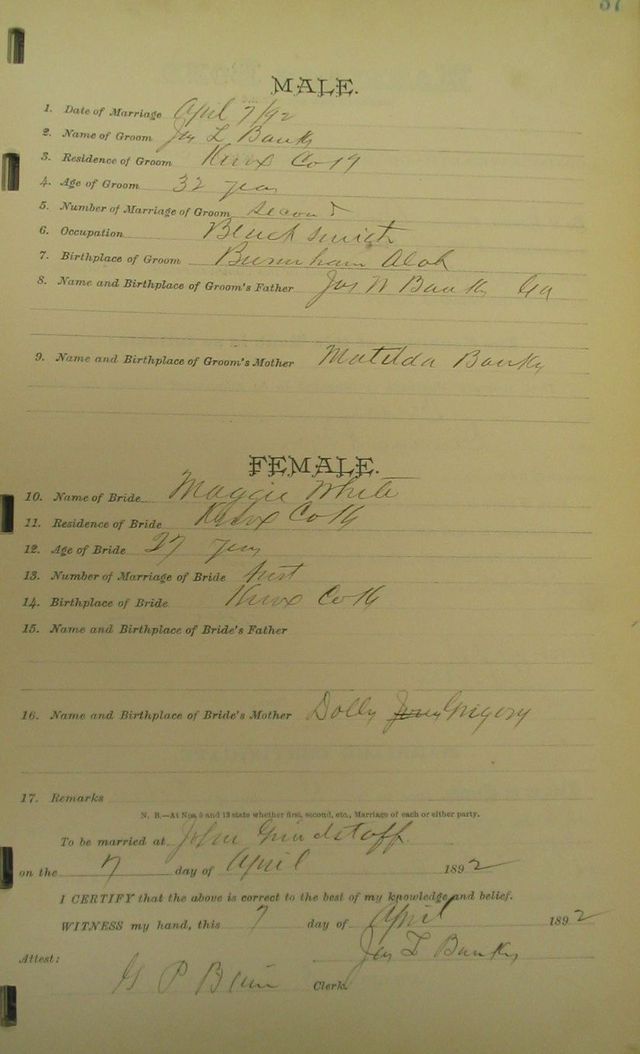 37
MALE.
1. Date of Marriage April 7/92
2. Name of Groom Jas L Banks
3. Residence of Groom Knox Co Ky
4. Age of Groom 32 years
5. Number of Marriage of Groom second
6. Occupation Blacksmith
7. Birthplace of Groom
8. Name and Birthplace of Groom's Father Jas W Banks Ga
9. Name and Birthplace of Groom's Mother Matilda Banks
FEMALE.
10. Name of Bride Maggie White
11. Residence of Bride Knox Co Ky
12. Age of Bride 27 years
13. Number of Marriage of Bride first
14. Birthplace of Bride Knox Co Ky
15. Name and Birthplace of Bride's Father
16. Name and Birthplace of Bride's Mother Dolly Gregory
17. Remarks
N. B.—At Nos. 5 and 13 state whether first, second, etc., Marriage of each or either party.
To be married at John Grindstaff
on the 7 day of April 1892
I CERTIFY that the above is correct to the best of my knowledge and belief.
WITNESS my hand, this 7 day of April 1892
Jas L Banks
Attest:
G P Clerk.